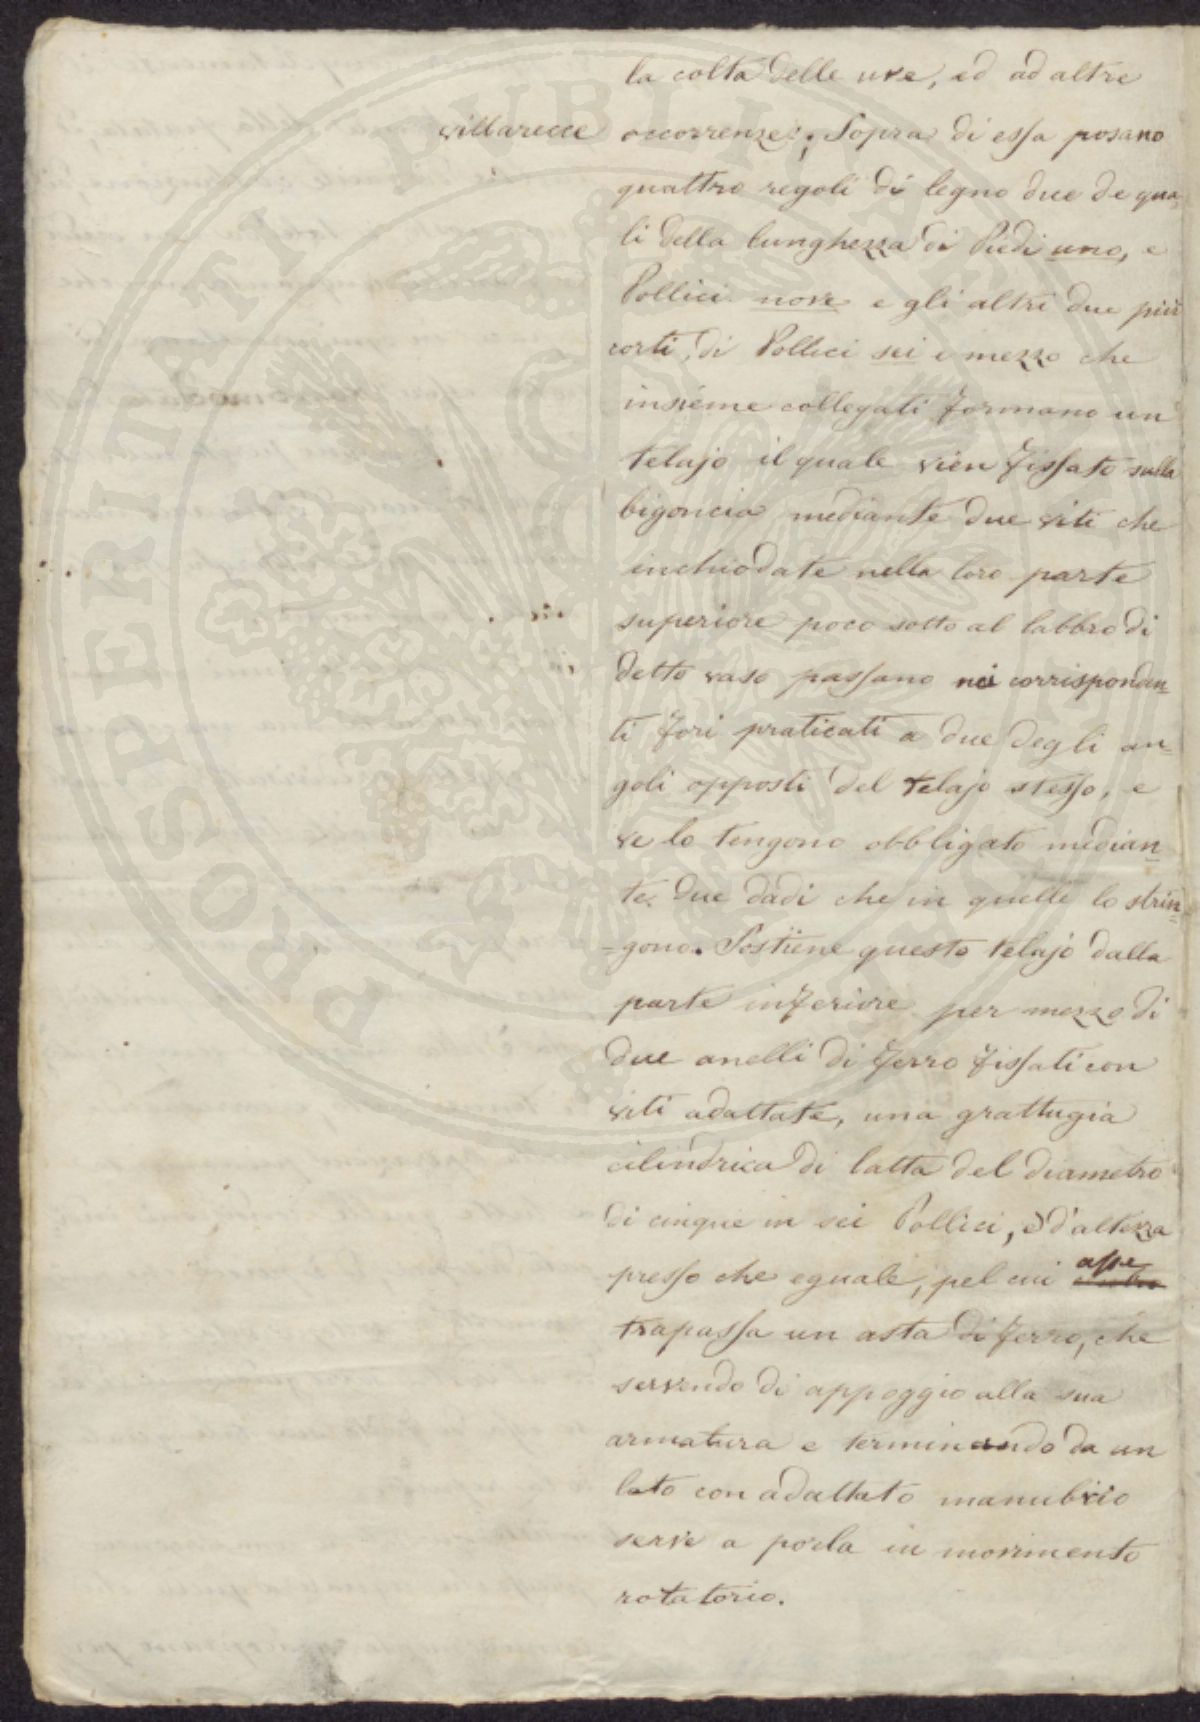 la colta delle uve, ed ad altre
villarecce occorrenze; Sopra di essa posano
quattro regoli di legno due de qua-
li della lunghezza di Piedi uno, e
Pollici nove e gli altri due più
corti, di Pollici sei e mezzo che
insieme collegati formano un
telajo il quale vien fissato sulla
bigoncia mediante due viti che
inchiodate nella loro parte
superiore poco sotto al labbro di
detto vaso passano nei corrisponden=
ti fori praticati a due degli an=
goli opposti del telajo stesso, e
ve lo tengono obbligato median=
te due dadi che in quelle lo strin=
=gono. Sostiene questo telajo dalla
parte inferiore per mezzo di
due anelli di ferro fissati con
viti adattate, una grattugia
cilindrica di latta del diametro
di cinque in sei Pollici, e d'altezza
presso che eguale, pel cui asse
trapassa un asta di ferro, che
servendo di appoggio alla sua
armatura e terminando da un
lato con adattato manubrio
serve a porla in movimento
rotatorio.
PROSPERITATI PUBLICAE